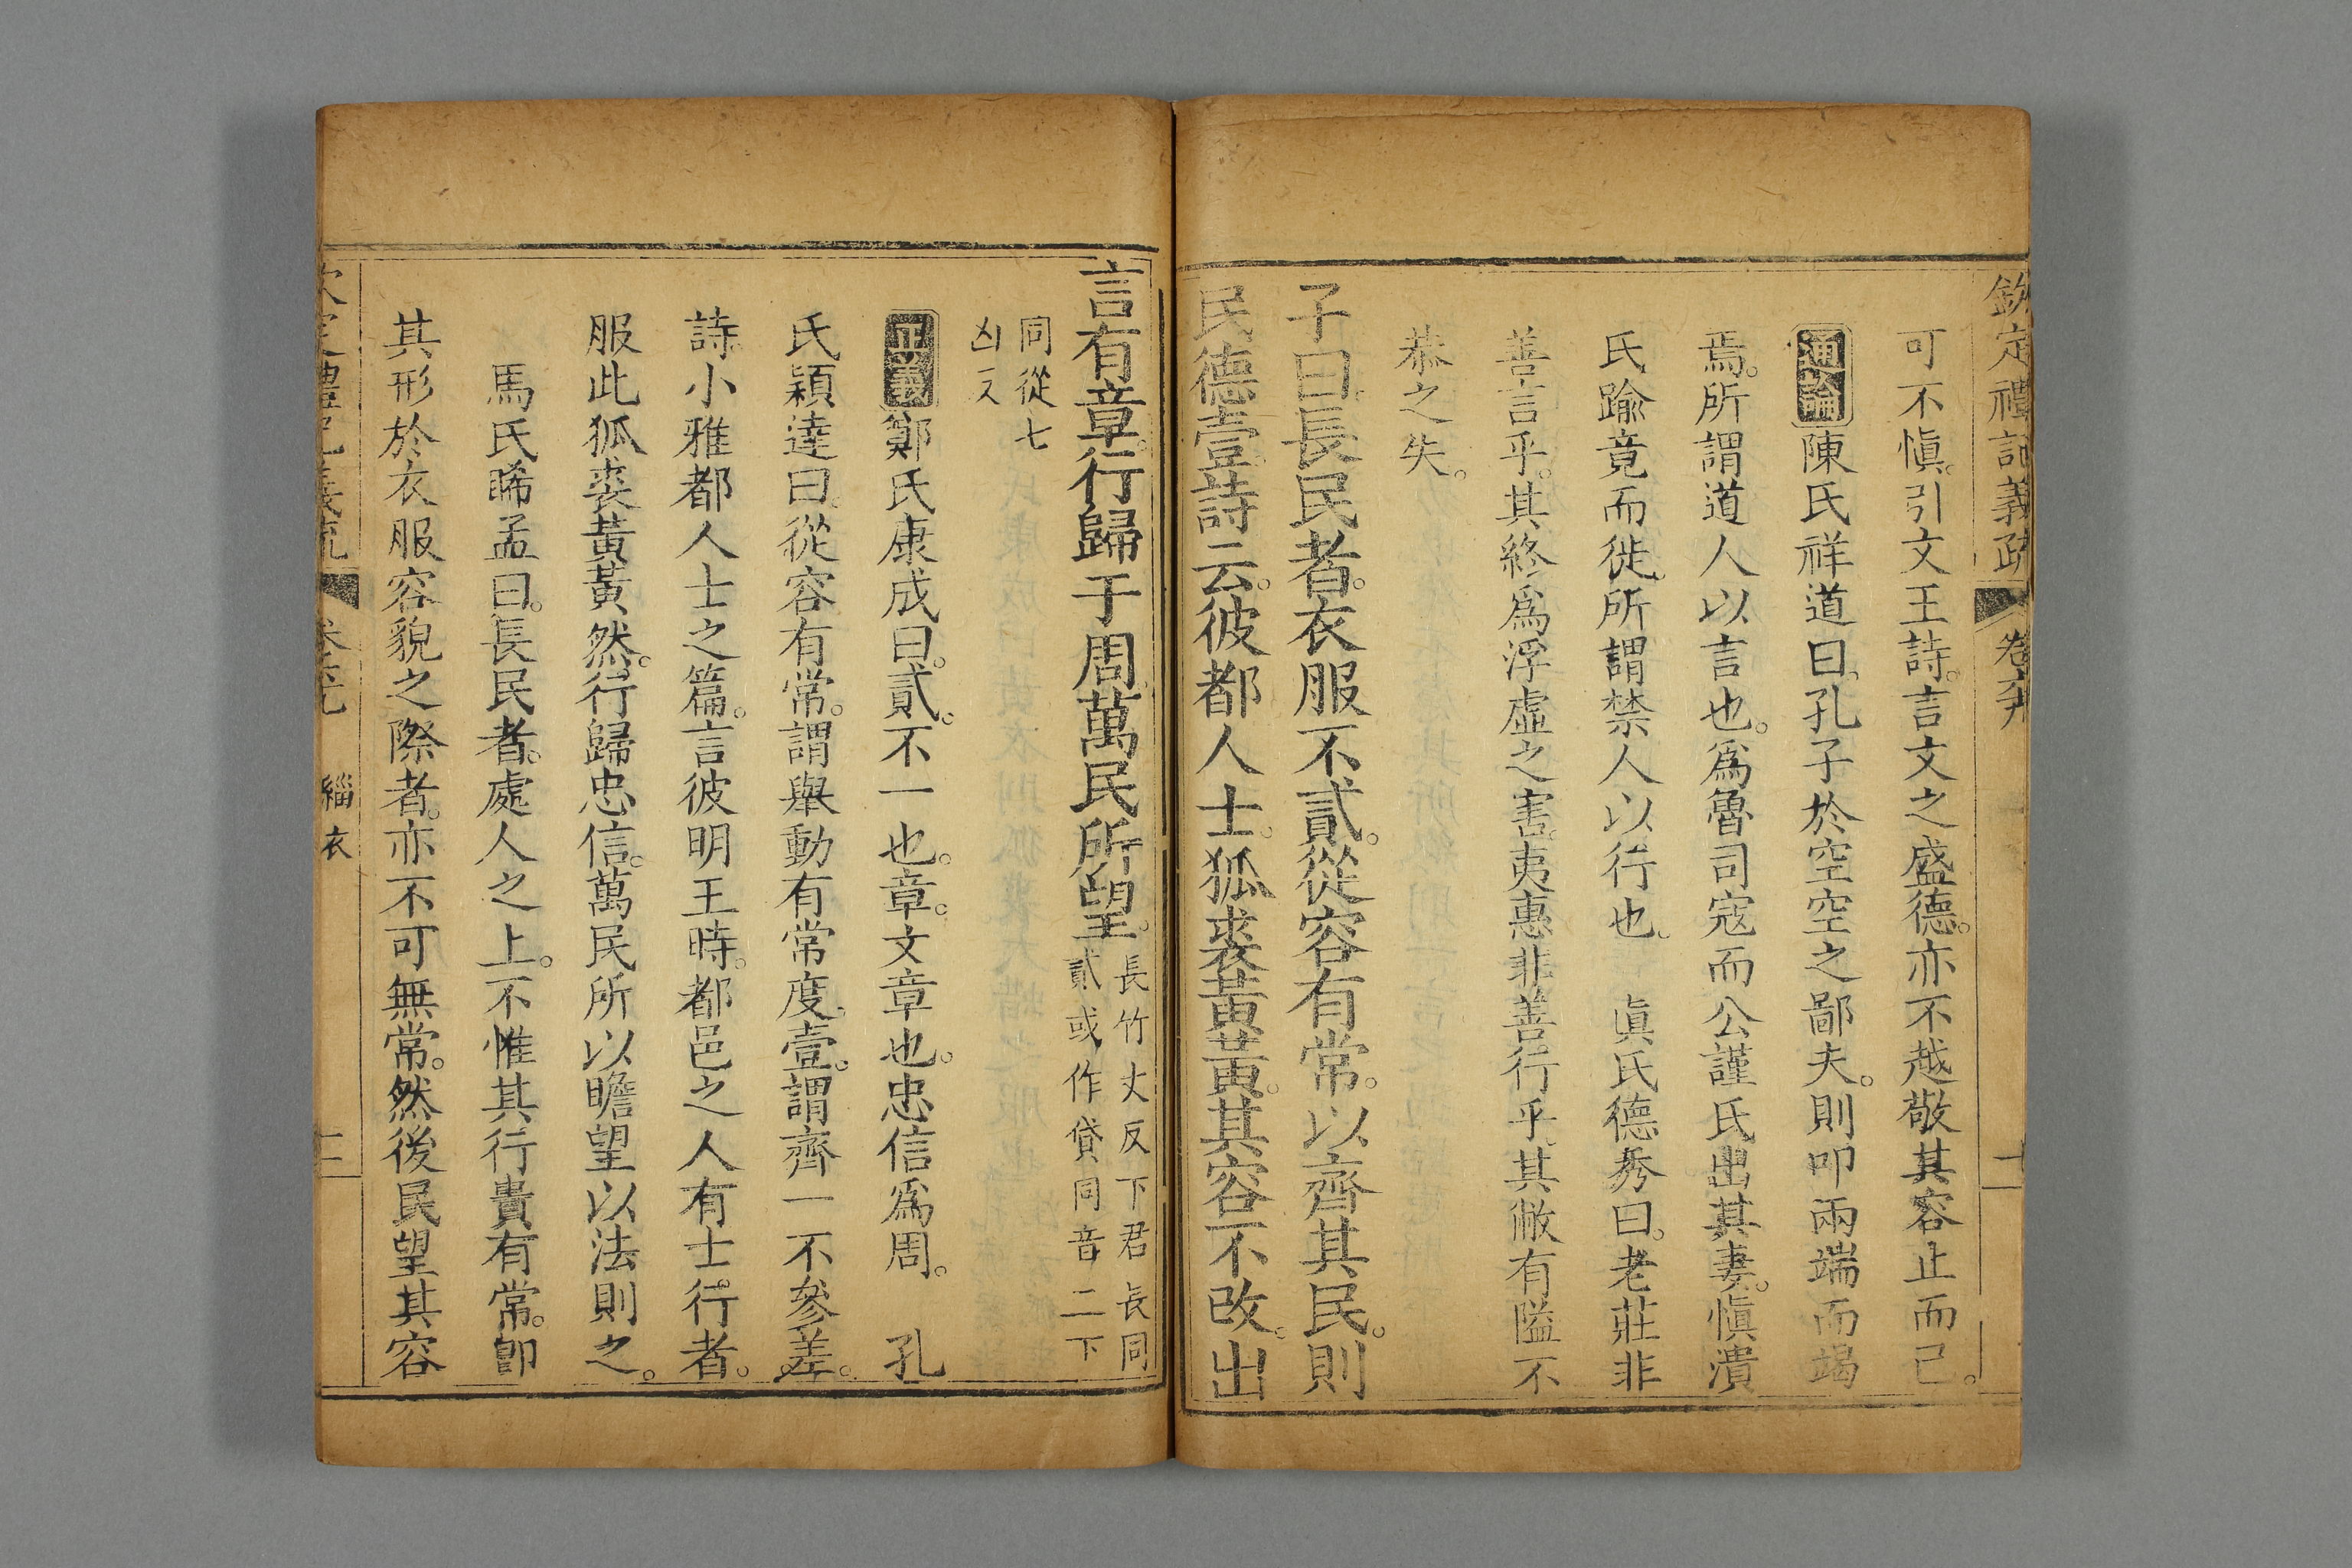 欽定禮記義疏 卷六十九 十一
可不愼。引文王詩。言文之盛德。亦不越敬其容止而已。
通論 陳氏祥道曰。孔子於空空之鄙夫。則叩兩端而竭
焉。所謂道人以言也。爲魯司寇而公謹氏出其妻。愼潰
氏踰竟而徙。所謂禁人以行也。 眞氏德秀曰。老莊非
善言乎。其終爲浮虛之害。夷惠非善行乎。其敝有隘不
恭之失。
子曰。長民者。衣服不貳。從容有常。以齊其民。則
民德壹。詩云。彼都人士。狐裘黃黃。其容不改。出
言有章。行歸于周。萬民所望。長竹丈反下君長同
貳或作貸同音二下
同從七
凶反
正義 鄭氏康成曰。貳。不一也。章。文章也。忠信爲周。 孔
氏穎達曰。從容有常。謂舉動有常度。壹。謂齊一不參差。
詩小雅都人士之篇。言彼明王時。都邑之人有士行者。
服此狐裘黃黃然。行歸忠信。萬民所以瞻望以法則之。
馬氏晞孟曰。長民者。處人之上。不惟其行貴有常。卽
其形於衣服容貌之際者。亦不可無常。然後民望其容
欽定禮記義疏 卷六十九 緇衣